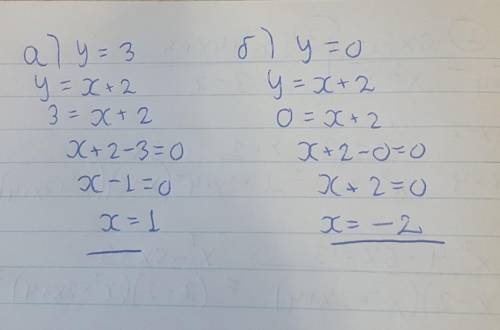 а) y = 3
y = x + 2
3 = x + 2
x + 2 - 3 = 0
x - 1 = 0
x = 1
б) y = 0
y = x + 2
0 = x + 2
x + 2 - 0 = 0
x + 2 = 0
x = - 2